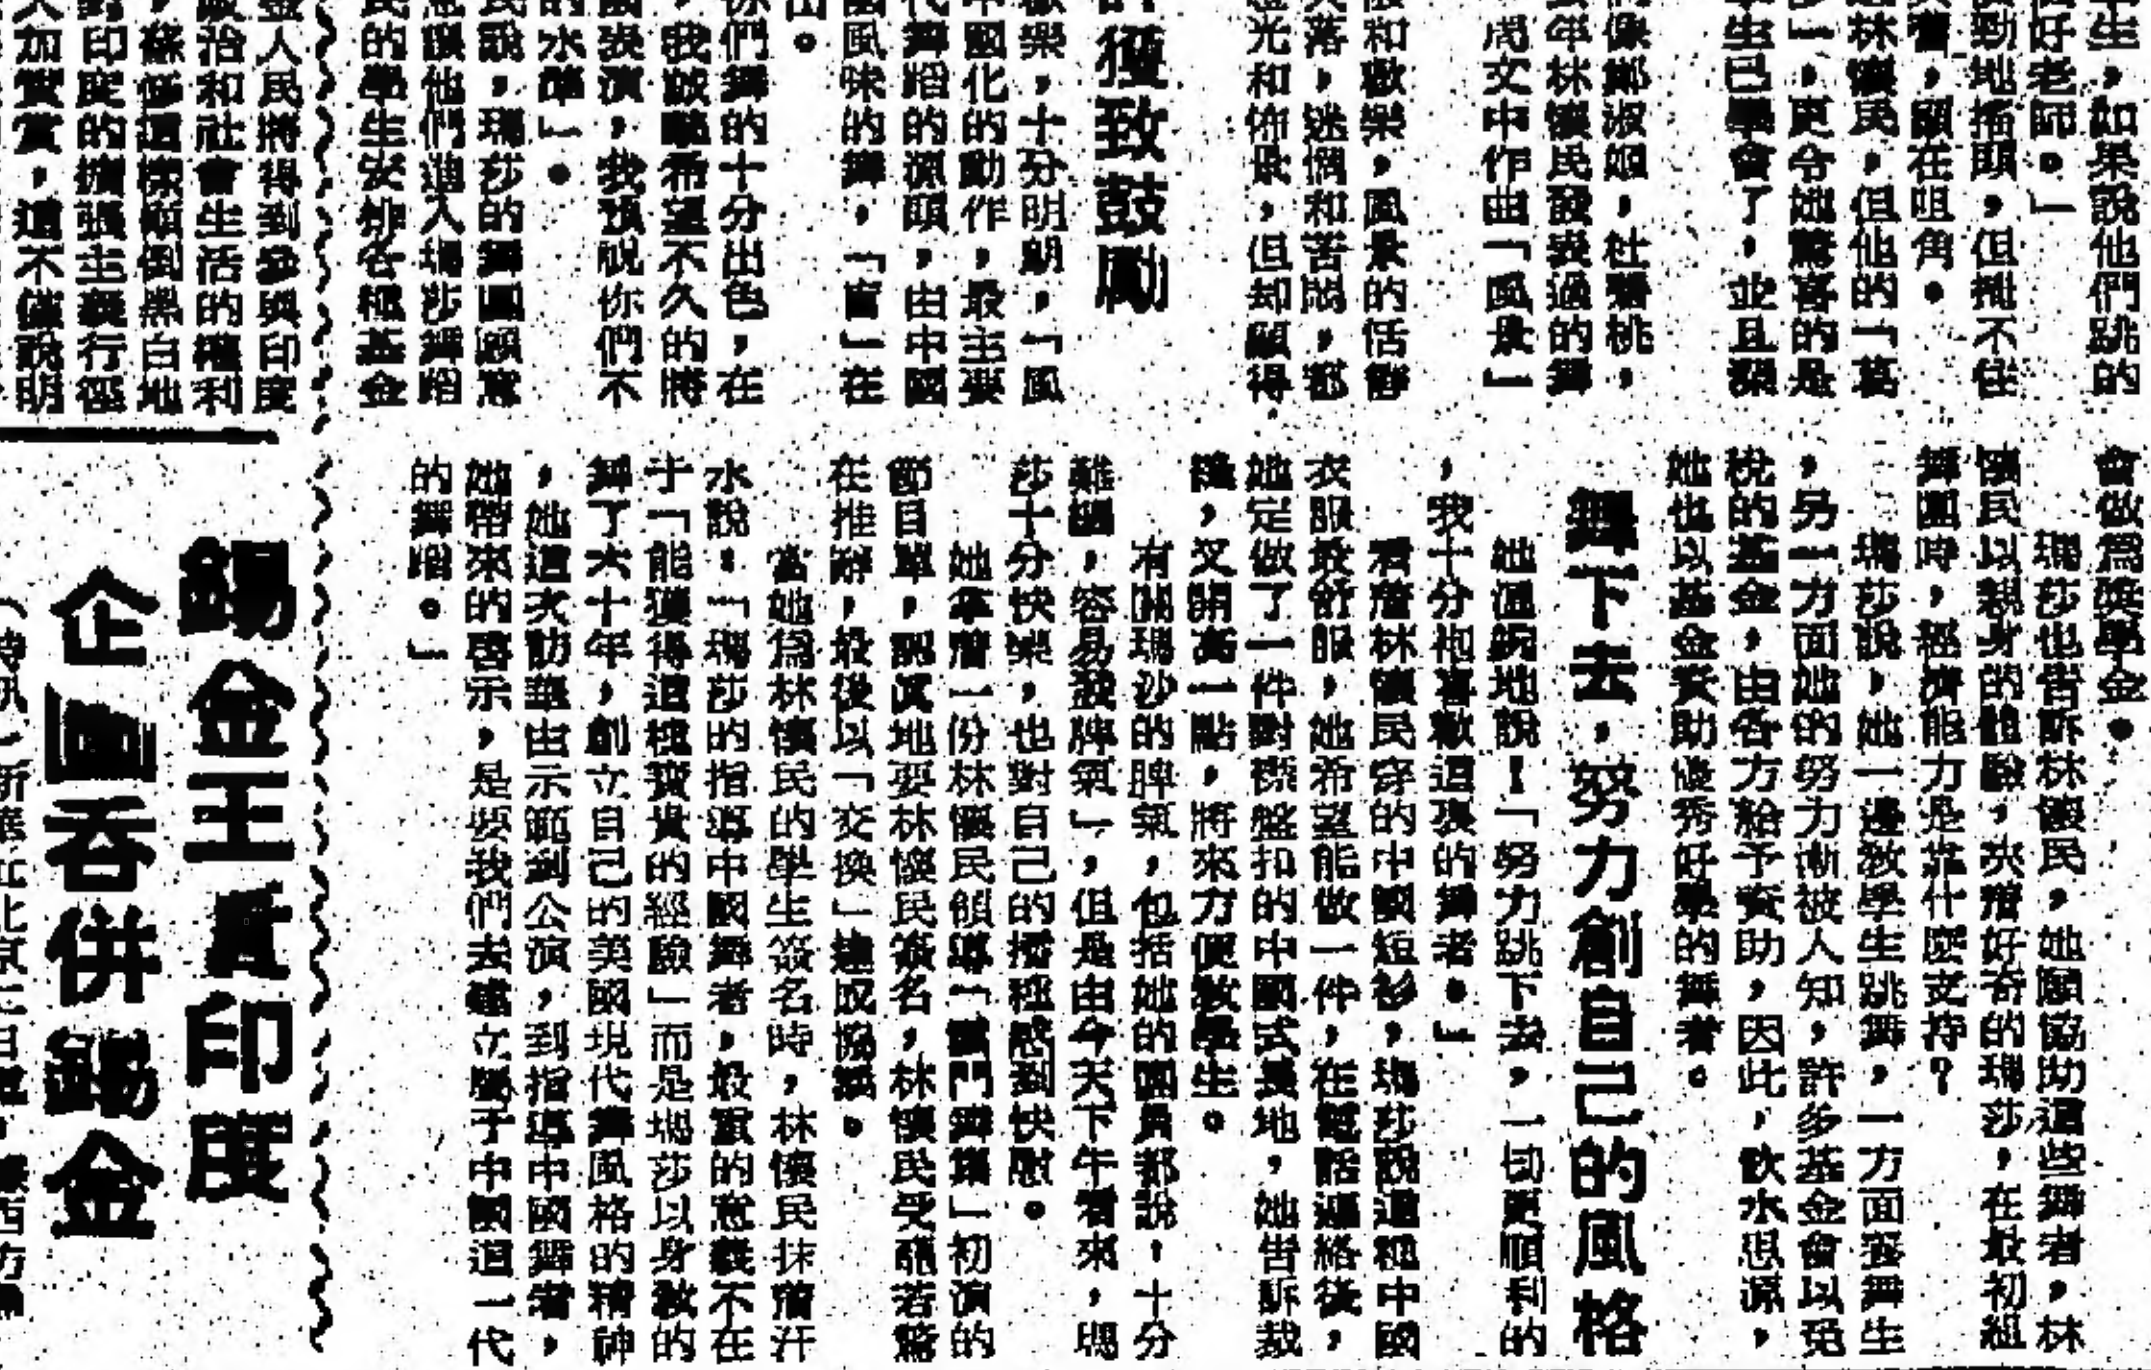 生,如果說他們跳的
好老師。」
勁地搖頭,但掩不住
,顯在咀角。
林懷民,但他的「
」,更令她驚喜的是
生已學會了,並且
像鄭淑姬,杜碧桃,
年林懷民發表過的舞
周文中作曲「風景」
和歡樂,風景的恬靜
落,迷惘和苦悶,都
光和佈景,但却顯得
獲致鼓勵
樂,十分明朗,「風
中國化的動作,最主要
代舞蹈的源頭,由中國
風味的舞,「盲」在
出。
你們舞的十分出色,在
,我誠懇希望不久的將
表演,我預祝你們不
的水準」。
民說,瑪莎的舞團願意
讓他們進入瑪莎舞蹈
民的學生安排各種基金
會做爲獎學金。
瑪莎也告訴林懷民,她願協助這些舞者,林
懷民以親身的體驗,夾着好奇的瑪莎,在最初組
舞團時,經濟能力是靠什麼支持?
瑪莎說,她一邊教學生跳舞,一方面養舞生
,另一方面她的努力漸被人知,許多基金會以免
稅的基金,由各方給予資助,因此,飲水思源,
她也以基金資助優秀好學的舞者。
舞下去,努力創自己的風格
她溫婉地說!「努力跳下去,一切更順利的
,我十分抱喜歡這裏的舞者。」
看着林懷民穿的中國短衫,瑪莎說這種中國
衣服最舒服,她希望能做一件,在電話連絡後,
她定做了一件對襟盤扣的中國式長地,她告訴裁
縫,叉開高一點,將來方便教學生。
有關瑪沙的脾氣,包括她的團員都說,十分
難纏,容易發脾氣」,但是由今天下午看來,瑪
莎十分快樂,也對自己的播種感到快慰。
她拿着一份林懷民領導「雲門舞集」初演的
節目單,認眞地要林懷民簽名,林懷民受寵若驚
在推辭,最後以「交換」達成協議。
當她爲林懷民的學生簽名時,林懷民抹着汗
水說:「瑪莎的指導中國舞者,最重的意義不在
于「能獲得這種寶貴的經驗」而是瑪莎以身教的
舞了六十年,創立自己的美國現代舞風格的精神
,她這次訪華由示範到公演,到指導中國舞者,
她帶來的啓示,是要我們去建立屬于中國這一代
的舞蹈。」
金人民將得到參與印度
政治和社會生活的權利
,蘇修這樣顛倒黑白地
對印度的擴張主義行徑
大加賞賞,這不僅說明
錫金王責印度
企圖吞併錫金